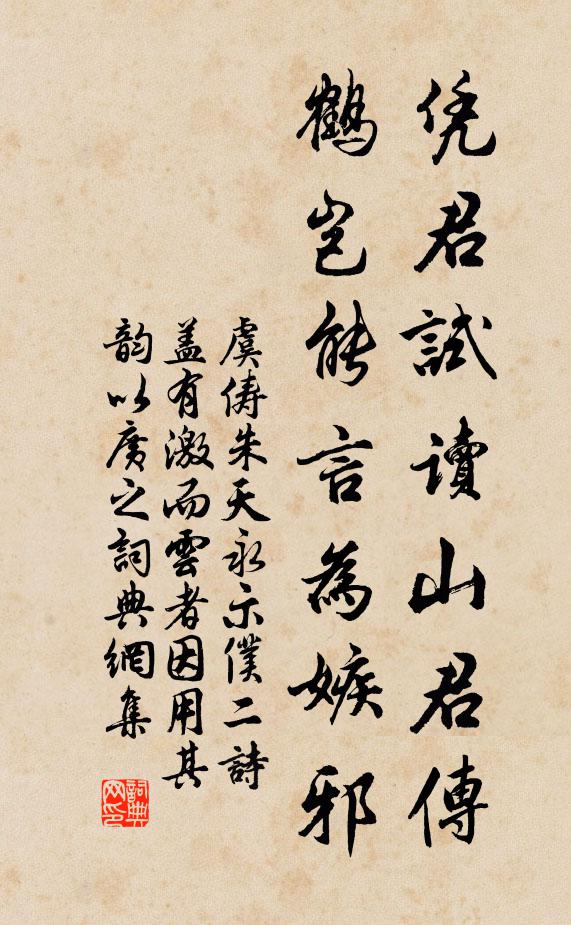 凭君試讀山君傳
鶴豈能言為嫉邪
虞儔朱天永示僕二詩
盖有激而雲者因用其
韵以廣之詞典網集
詞典
网印